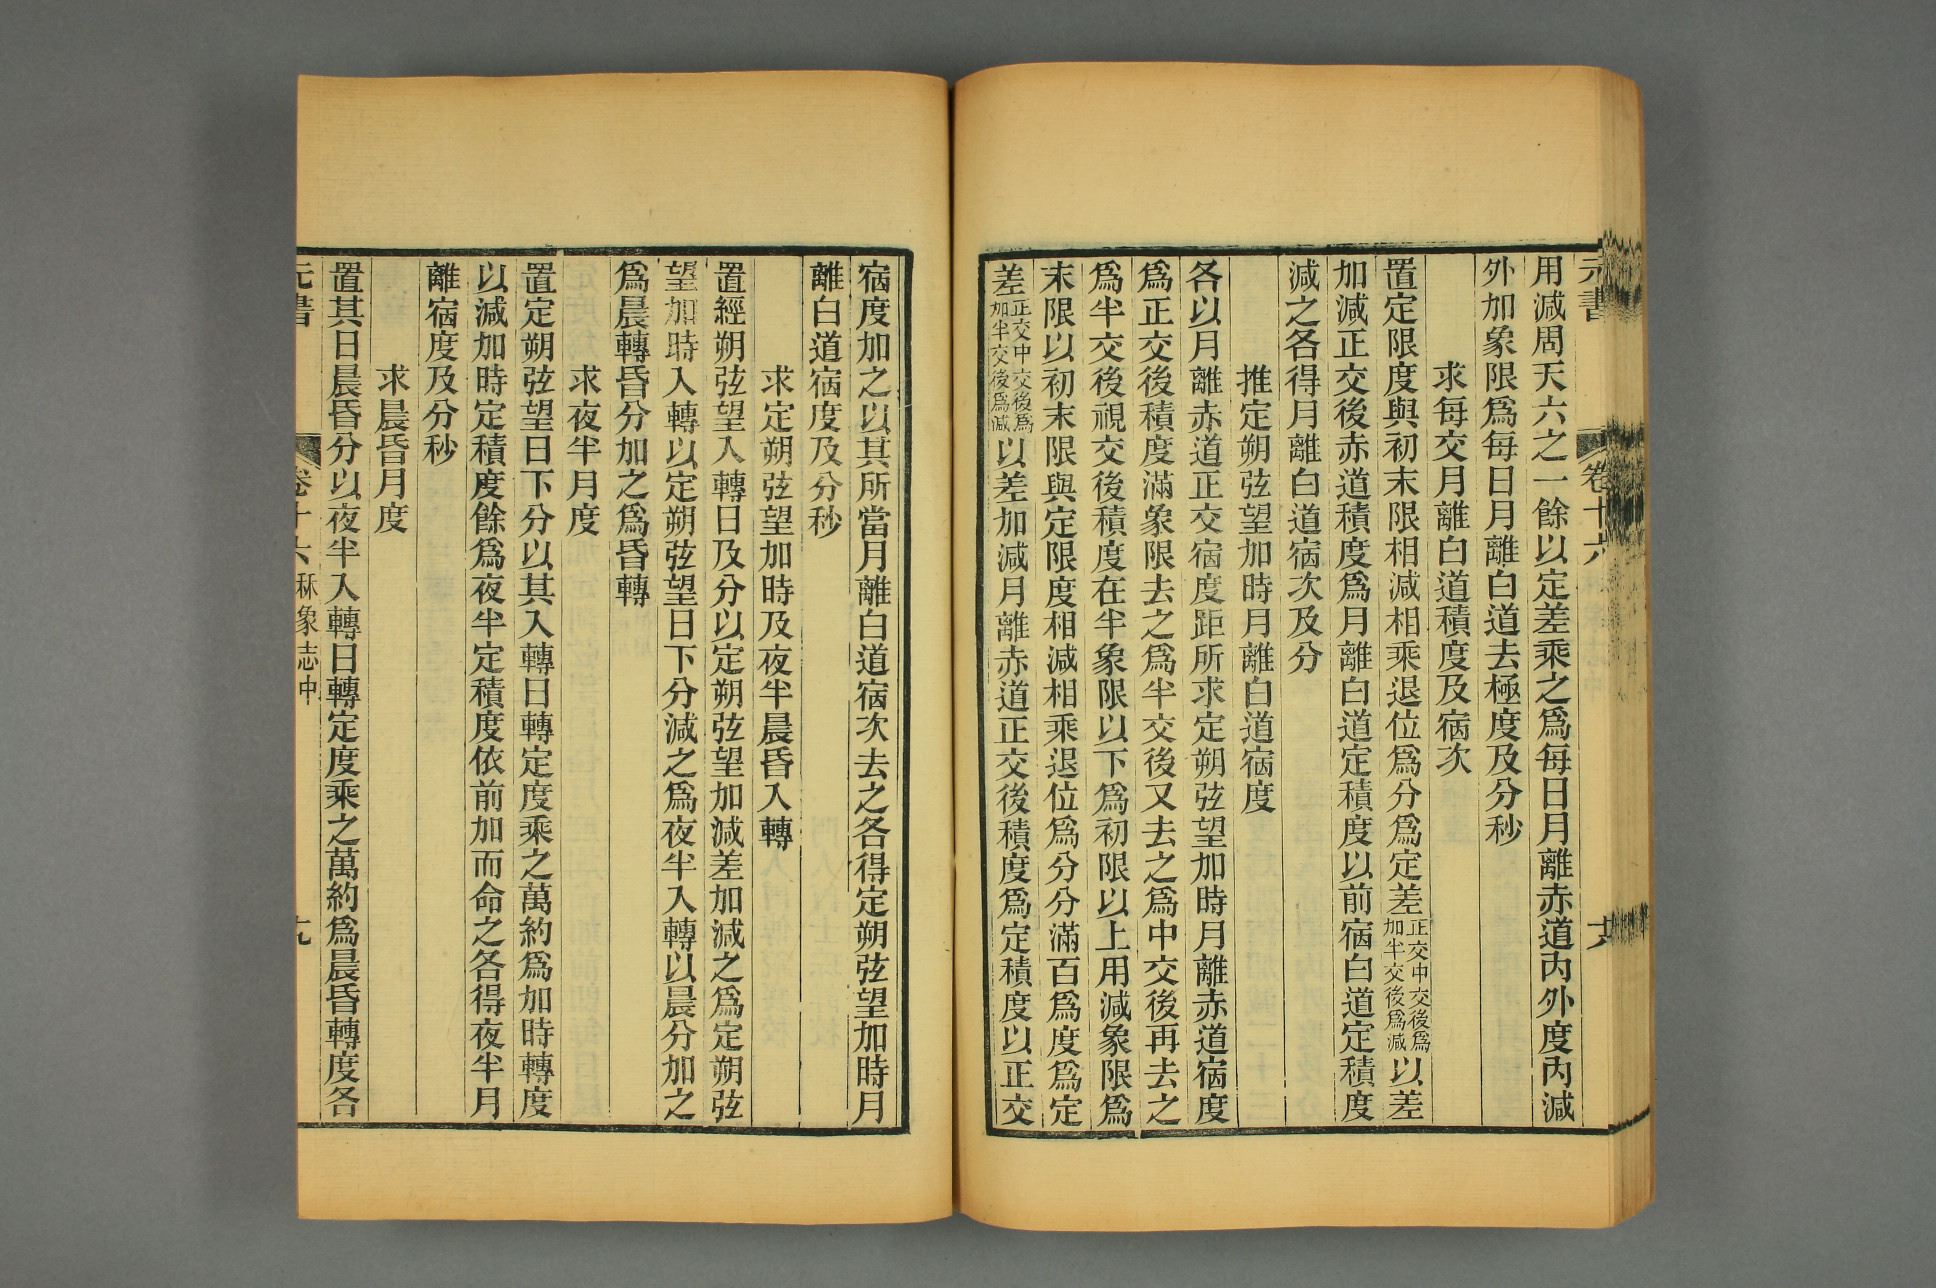 元書
卷十六
用減周天六之一餘以定差乘之爲每日月離赤道內外度內減
外加象限爲每日月離白道去極度及分秒
求每交月離白道積度及宿次
置定限度與初末限相減相乘退位爲分爲定差正交中交後爲加半交後爲減以差
加減正交後赤道積度爲月離白道定積度以前宿白道定積度
減之各得月離白道宿次及分
推定朔弦望加時月離白道宿度
各以月離赤道正交宿度距所求定朔弦望加時月離赤道宿度
爲正交後積度滿象限去之爲半交後又去之爲中交後再去之
爲半交後視交後積度在半象限以下爲初限以上用減象限爲
末限以初末限與定限度相減相乘退位爲分分滿百爲度爲定
差正交中交後爲加半交後爲減以差加減月離赤道正交後積度爲定積度以正交
宿度加之以其所當月離白道宿次去之各得定朔弦望加時月
離白道宿度及分秒
求定朔弦望加時及夜半晨昏入轉
置經朔弦望入轉日及分以定朔弦望加減差加減之爲定朔弦
望加時入轉以定朔弦望日下分減之爲夜半入轉以晨分加之
爲晨轉昏分加之爲昏轉
求夜半月度
置定朔弦望日下分以其入轉日轉定度乘之萬約爲加時轉度
以減加時定積度餘爲夜半定積度依前加而命之各得夜半月
離宿度及分秒
求晨昏月度
置其日晨昏分以夜半入轉日轉定度乘之萬約爲晨昏轉度各
元書
卷十六秝象志中
十九